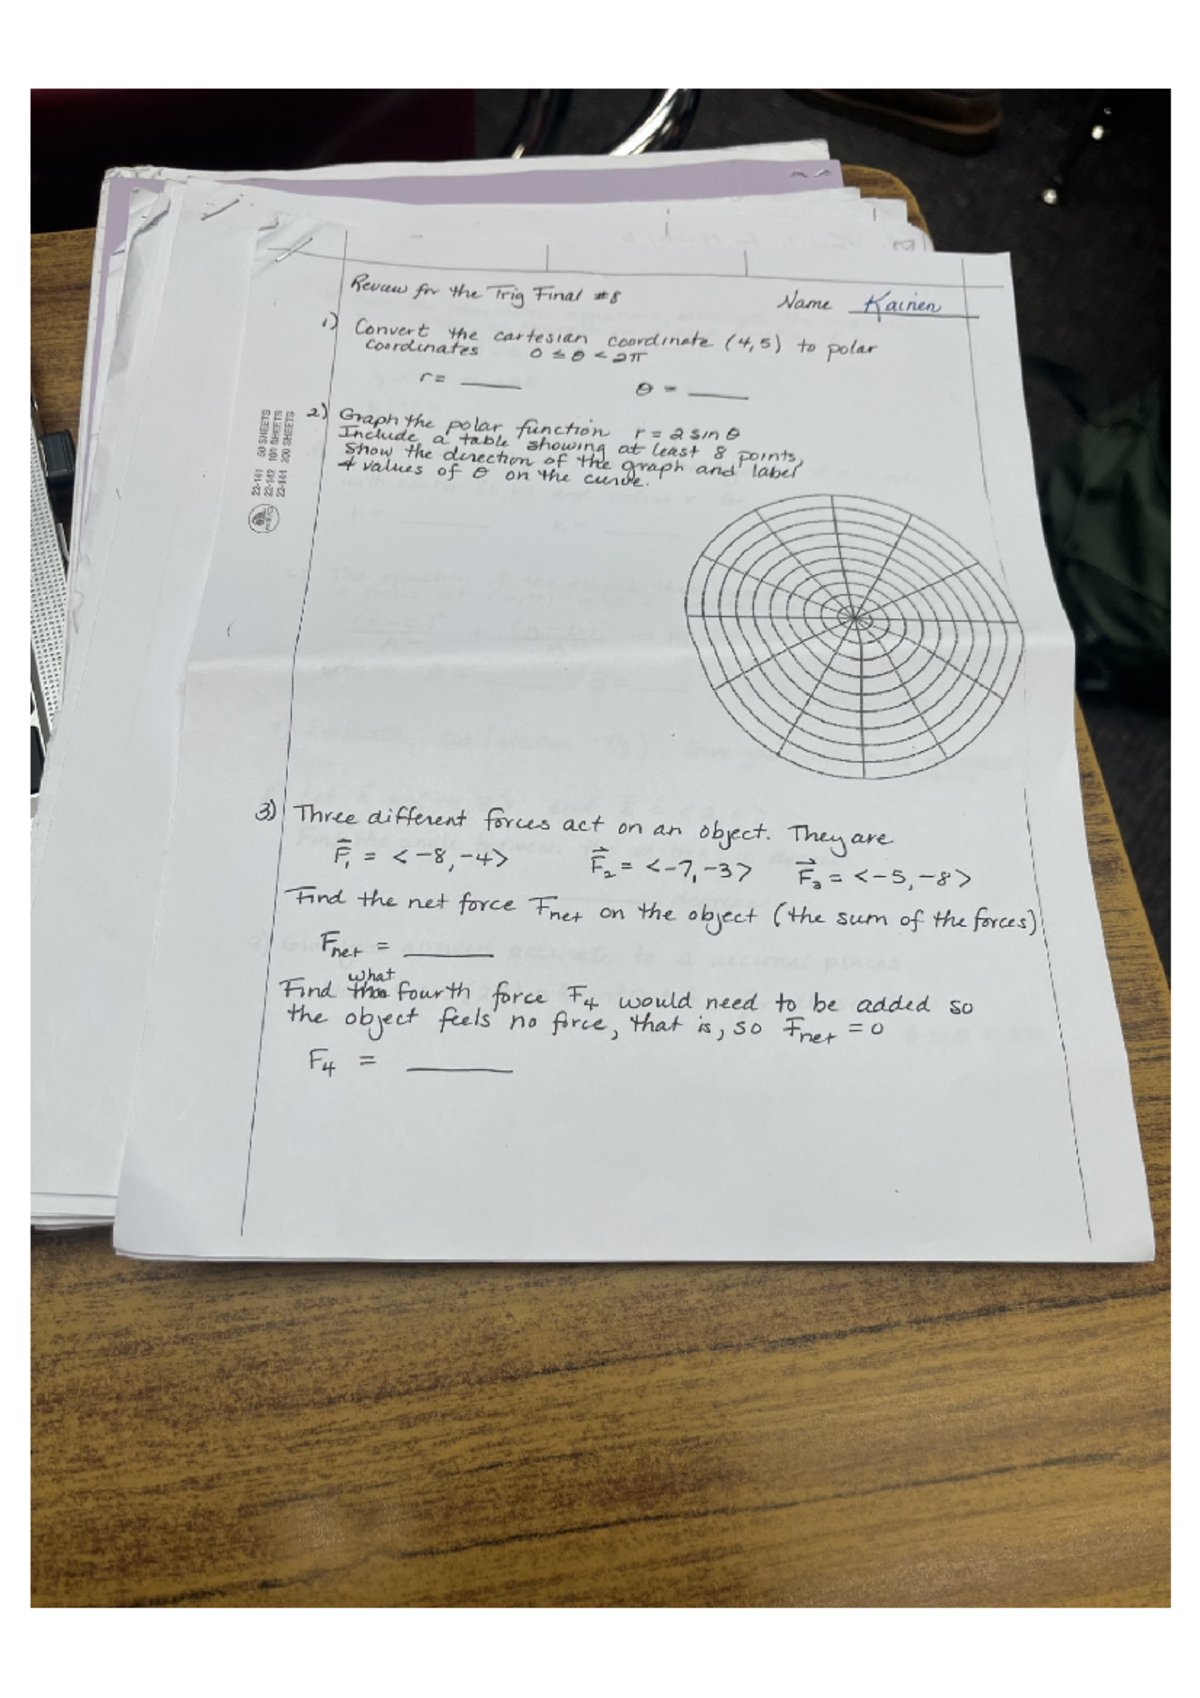 Review for the Trig Final #8
Name Kainen
1) Convert the cartesian coordinate (4,5) to polar
coordinates 0 ≤ θ < 2π
r= ____ θ = ____
22-141 50 SHEETS
22-142 100 SHEETS
22-144 200 SHEETS
2) Graph the polar function r = 2 sin θ
Include a table showing at least 8 points,
Show the direction of the graph and label
4 values of θ on the curve.
3) Three different forces act on an object. They are
F⃗₁ = <-8,-4> F⃗₂ = <-7,-3> F⃗₃ = <-5,-8>
Find the net force Fnet on the object (the sum of the forces)
Fnet = ____
what
Find fourth force F₄ would need to be added so
the object feels no force, that is, so Fnet = 0
F₄ = ____